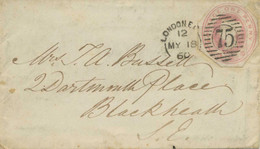 LONDON E.C
12
MY 18
60
75
Mrs. T. A. Bussell
2 Dartmouth Place
Blackheath
S.E.